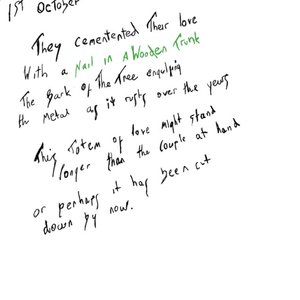 1ST October
They cementented Their love
With a Nail in A Wooden Trunk
The Bark of The Tree engulfing
the Metal as it rusts over the years
This Totem of love might stand
longer than the couple at hand
or perhaps it has been cut
down by now.